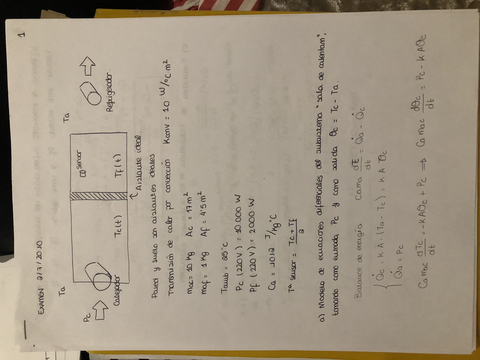 1
EXAMEN 2/7/2020
Ta
Ta
Pc
sensor
Tc(t)
Tf(t)
Calefactor
Refrigerador
Aislante ideal
Pared y suelo son aislantes ideales
Transmisión de calor por convección Kconv = 10 W/°C m²
mac = 20 kg Ac = 17 m²
maf = 1 kg Af = 4'5 m²
Tamb = 25°C
Pc (220V) = 10 000 W
Pf (220V) = 2000 W
Ca = 1012 J/kg°C
Tª sensor = Tc + Tf / 2
a) Modelo de ecuaciones diferenciales del subsistema "sala de calentam",
tomando como entrada Pc y como salida θc = Tc - Ta.
Balance de energía Ca ma dT/dt = Q̇a - Q̇c
Q̇c = k A (Ta - Tc) = k A θc
Q̇a = Pc
Ca mac dTc/dt = -kAθc + Pc ⇒ Ca mac dθc/dt = Pc - kAθc